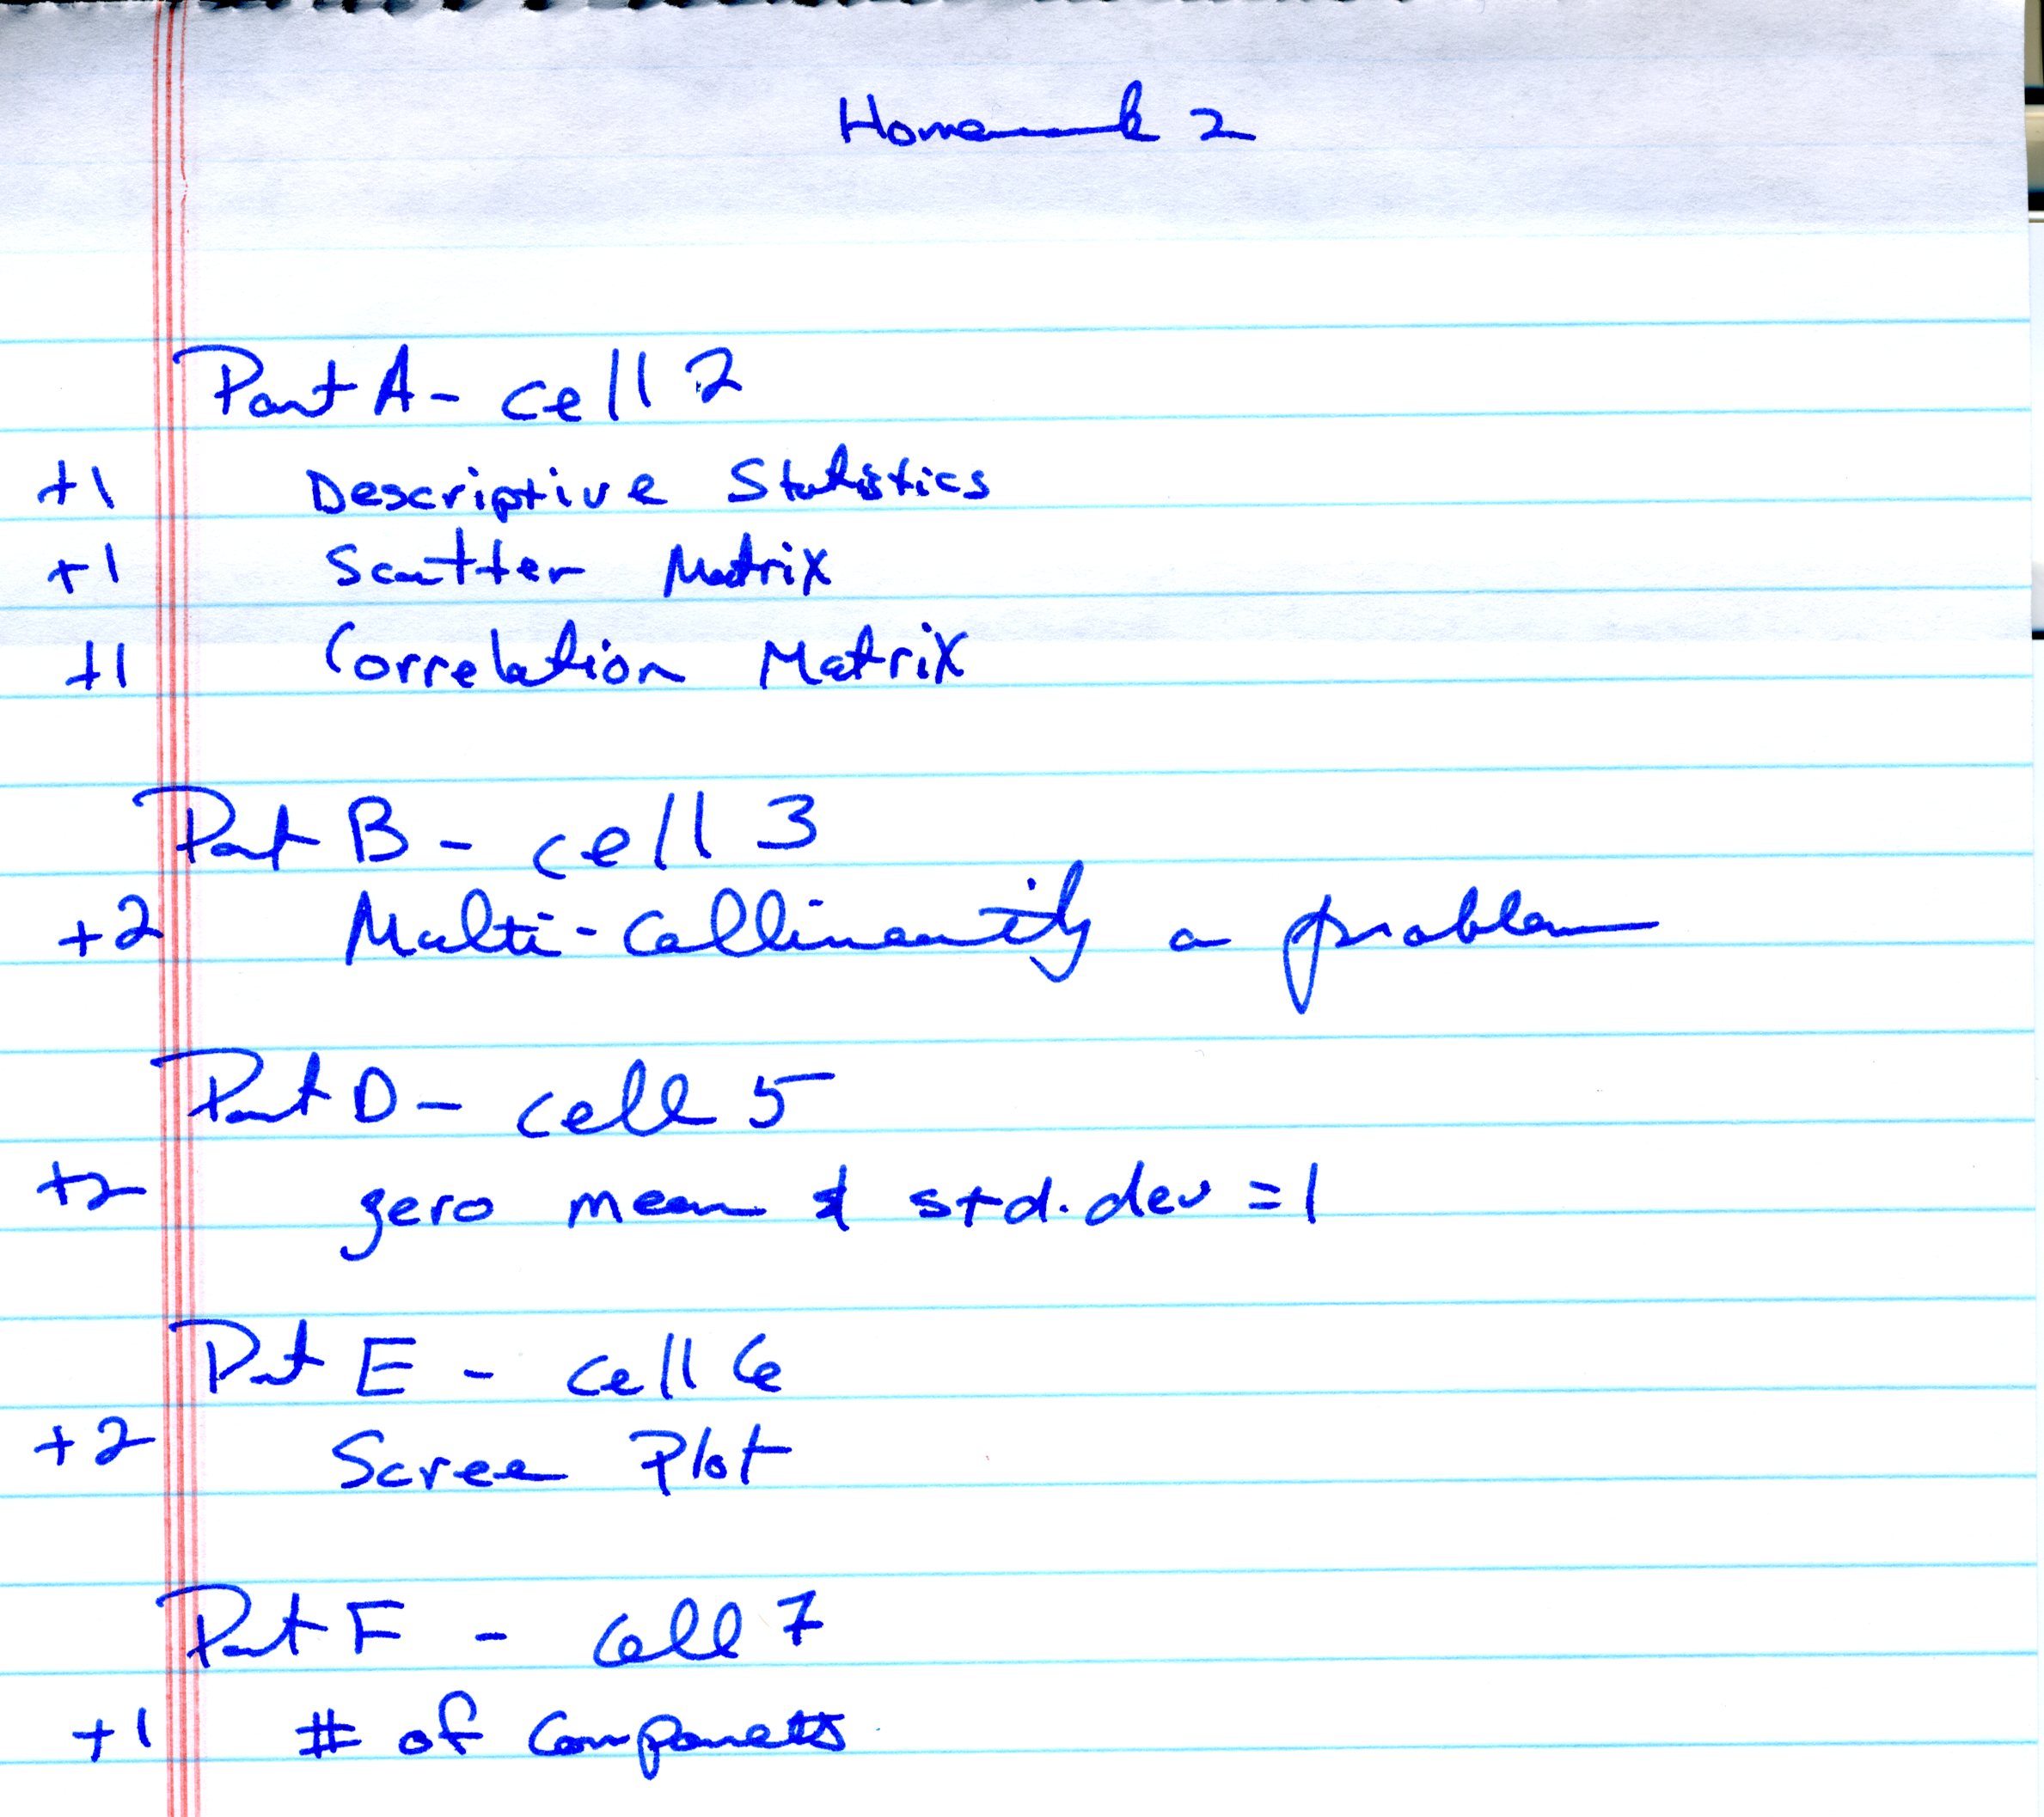 Homework 2
Part A - cell 2
+1 Descriptive Statistics
+1 Scatter Matrix
+1 Correlation Matrix
Part B - cell 3
+2 Multi-Collinearity a problem
Part D - cell 5
+2 zero mean & std.dev = 1
Part E - cell 6
+2 Scree Plot
Part F - cell 7
+1 # of Componets